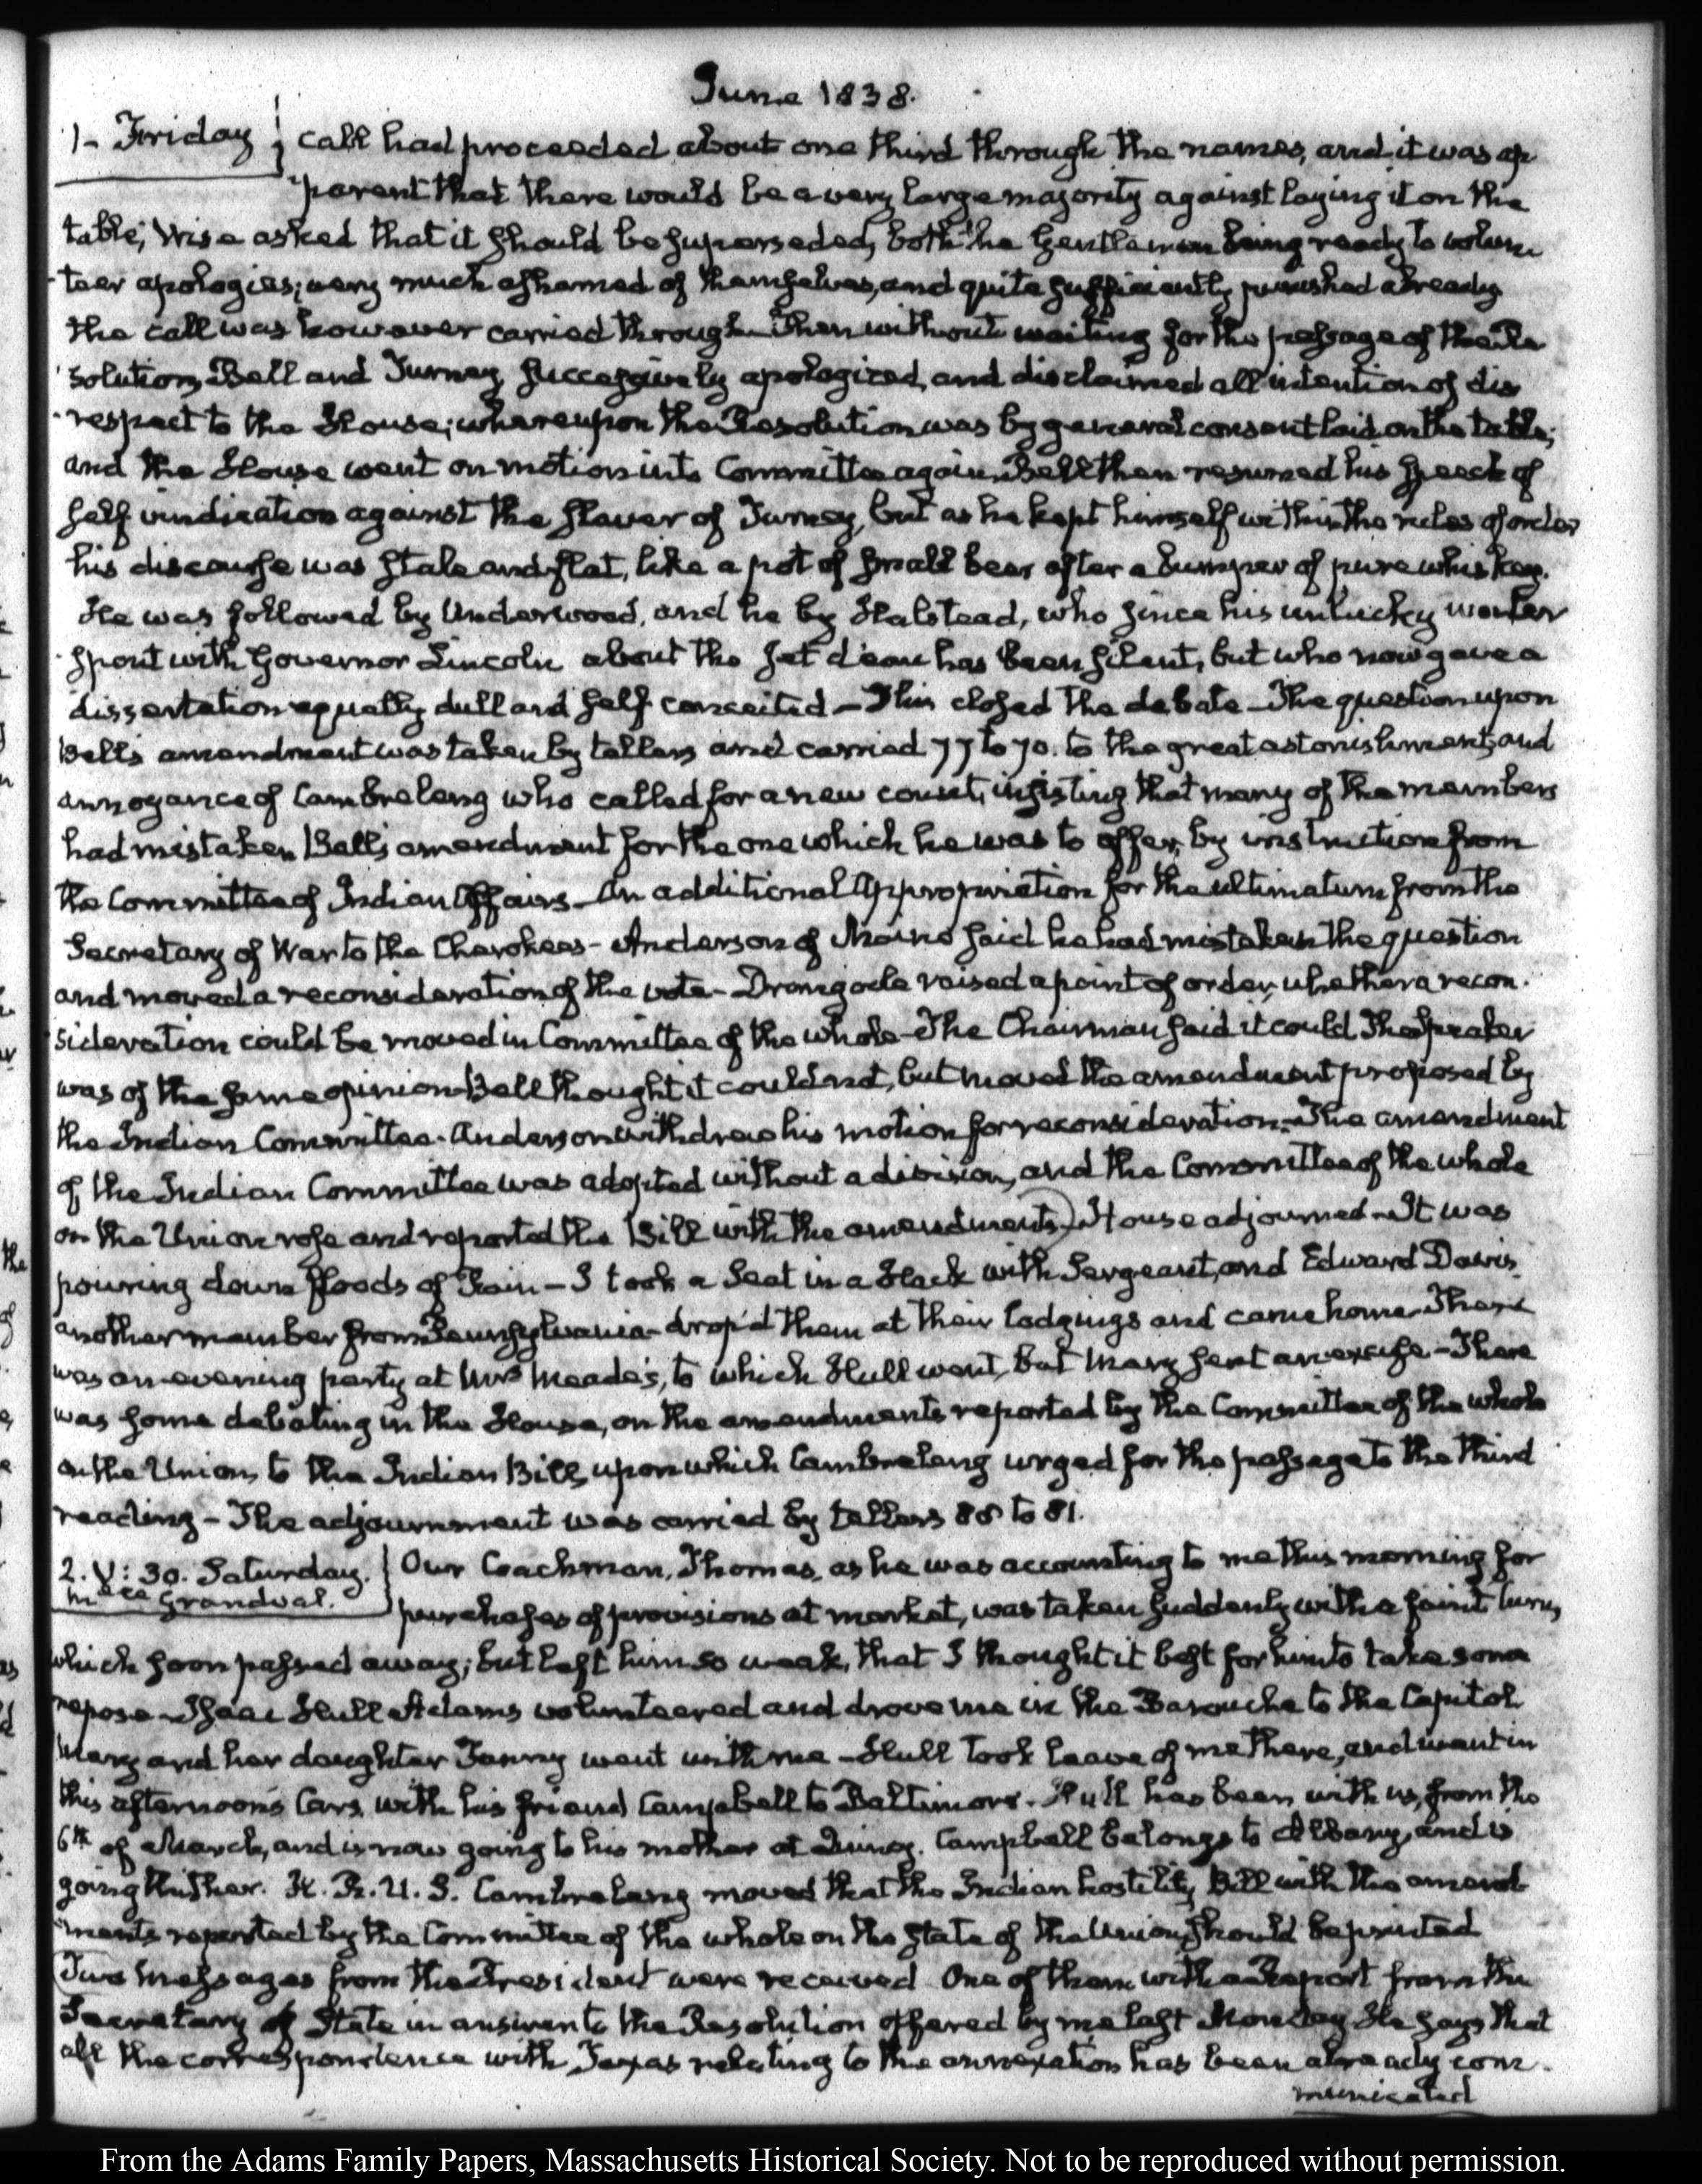 June 1838.
1- Friday } call had proceeded about one third through the names, and it was ap
parent that there would be a very large majority against laying it on the
table; Wise asked that it should be superseded, both the Gentlemen being ready to volun
-teer apologies; very much ashamed of themselves, and quite sufficiently punished already
the call was however carried through. Then without waiting for the passage of the Re
solution, Bell and Turney successively apologized, and disclaimed all intention of dis
respect to the House; whereupon the Resolution was by general consent laid on the table;
and the House went on motion into Committee again. Bell then resumed his speech of
self vindication against the slaver of Turney, but as he kept himself within the rules of order
his discourse was stale and flat, like a pot of small beer after a bumper of pure whiskey.
He was followed by Underwood, and he by Halstead, who since his unlucky water
spout with Governor Lincoln about the jet d'eau has been silent, but who now gave a
dissertation equally dull and self conceited - This closed the debate - The question upon
Bell's amendment was taken by tellers and carried 77 to 70. to the great astonishment, and
annoyance of Cambreleng who called for a new count, insisting that many of the members
had mistaken Bell's amendment for the one which he was to offer, by instruction from
the Committee of Indian Affairs - An additional Appropriation for the ultimatum from the
Secretary of War to the Cherokees - Anderson of Maine said he had mistaken the question
and moved a reconsideration of the vote - Dromgoole raised a point of order, whether a recon-
sideration could be moved in Committee of the whole - The Chairman said it could The Speaker
was of the same opinion - Bell thought it could not, but moved the amendment proposed by
the Indian Committee. Anderson withdrew his motion for reconsideration - The amendment
of the Indian Committee was adopted without a division, and the Committee of the whole
on the Union rose and reported the Bill with the amendments) House adjourned - It was
pouring down floods of Rain - I took a Seat in a Hack with Sergeant, and Edward Davis,
another member from Pennsylvania - drop'd them at their lodgings and came home - There
was an evening party at Mrs Meade's, to which Hull went, but Mary sent an excuse - There
was some debating in the House, on the amendments reported by the Committee of the whole
on the Union, to the Indian Bill, upon which Cambreleng urged for the passage to the third
reading - The adjournment was carried by tellers 88 to 81.
2. V: 30. Saturday. } Our Coachman, Thomas, as he was accounting to me this morning for
Grandval. purchases of provisions at market, was taken suddenly with a faint turn,
which soon passed away; but left him so weak, that I thought it best for him to take some
repose - Isaac Hull Adams volunteered and drove me in the Barouche to the Capitol
Mary and her daughter Fanny went with me - Hull took leave of me there, and went in
this afternoon's Cars, with his friend Campbell to Baltimore. Hull has been with us, from the
6th of March, and is now going to his mother at Quincy. Campbell belongs to Albany, and is
going thither. H. R. U. S. Cambreleng moved that the Indian hostility Bill with the amend
ments reported by the Committee of the whole on the state of the Union should be printed
(Two Messages from the President were received One of them with a Report from the
Secretary of State in answer to the Resolution offered by me last Monday He says that
all the correspondence with Texas relating to the annexation has been already com-
municated
From the Adams Family Papers, Massachusetts Historical Society. Not to be reproduced without permission.